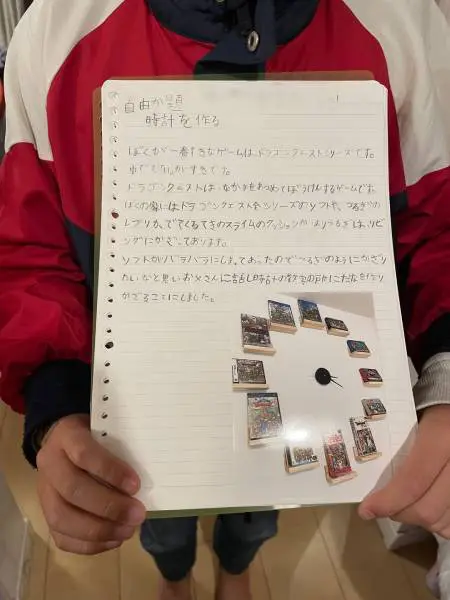 自由か題
時計を作る
1
ぼくが一番すきなゲームは、ドラゴンクエストシリーズです。
中でも がすきです。
ドラゴンクエストは、なかまをあつめてぼうけんするゲームです。
ぼくの家にはドラゴンクエスト全シリーズのソフトや、つるぎの
レプリカ、でてくるてきのスライムのクッションがありつるぎは、リビ
ングにかざっております。
ソフトがバラバラにしまってあったのでつるぎのようにかざり
たいなと思いお父さんに話し時計の数字の所にたなを作り
かざることにしました。